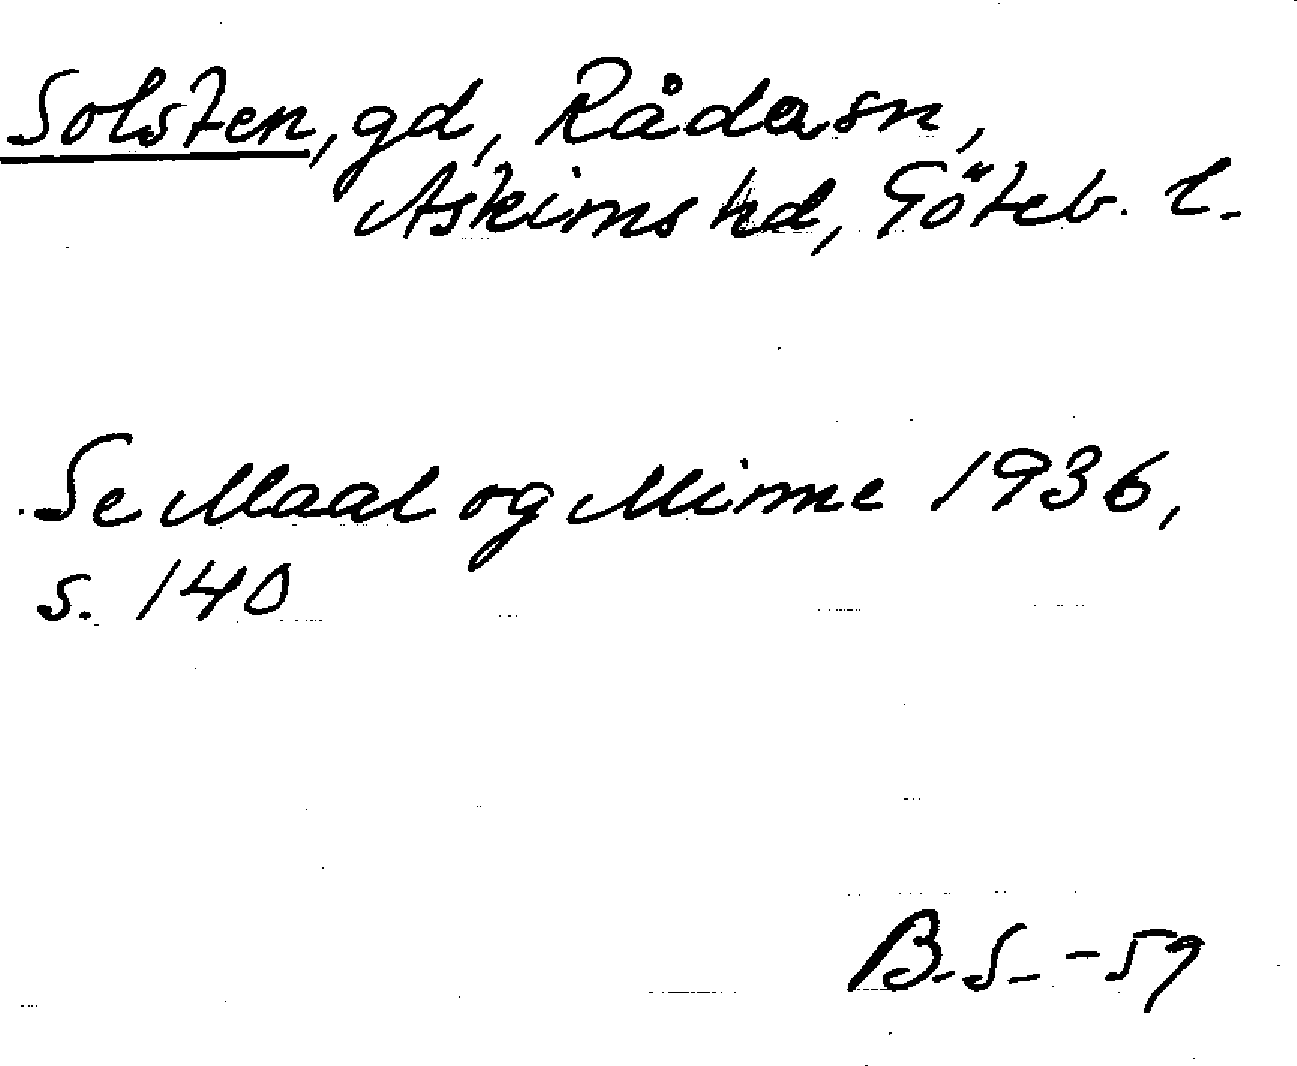 Solsten, gd, Råda sn,
Askims hd, Göteb. l.
Se Maal og Minne 1936,
s. 140
B. S. -59